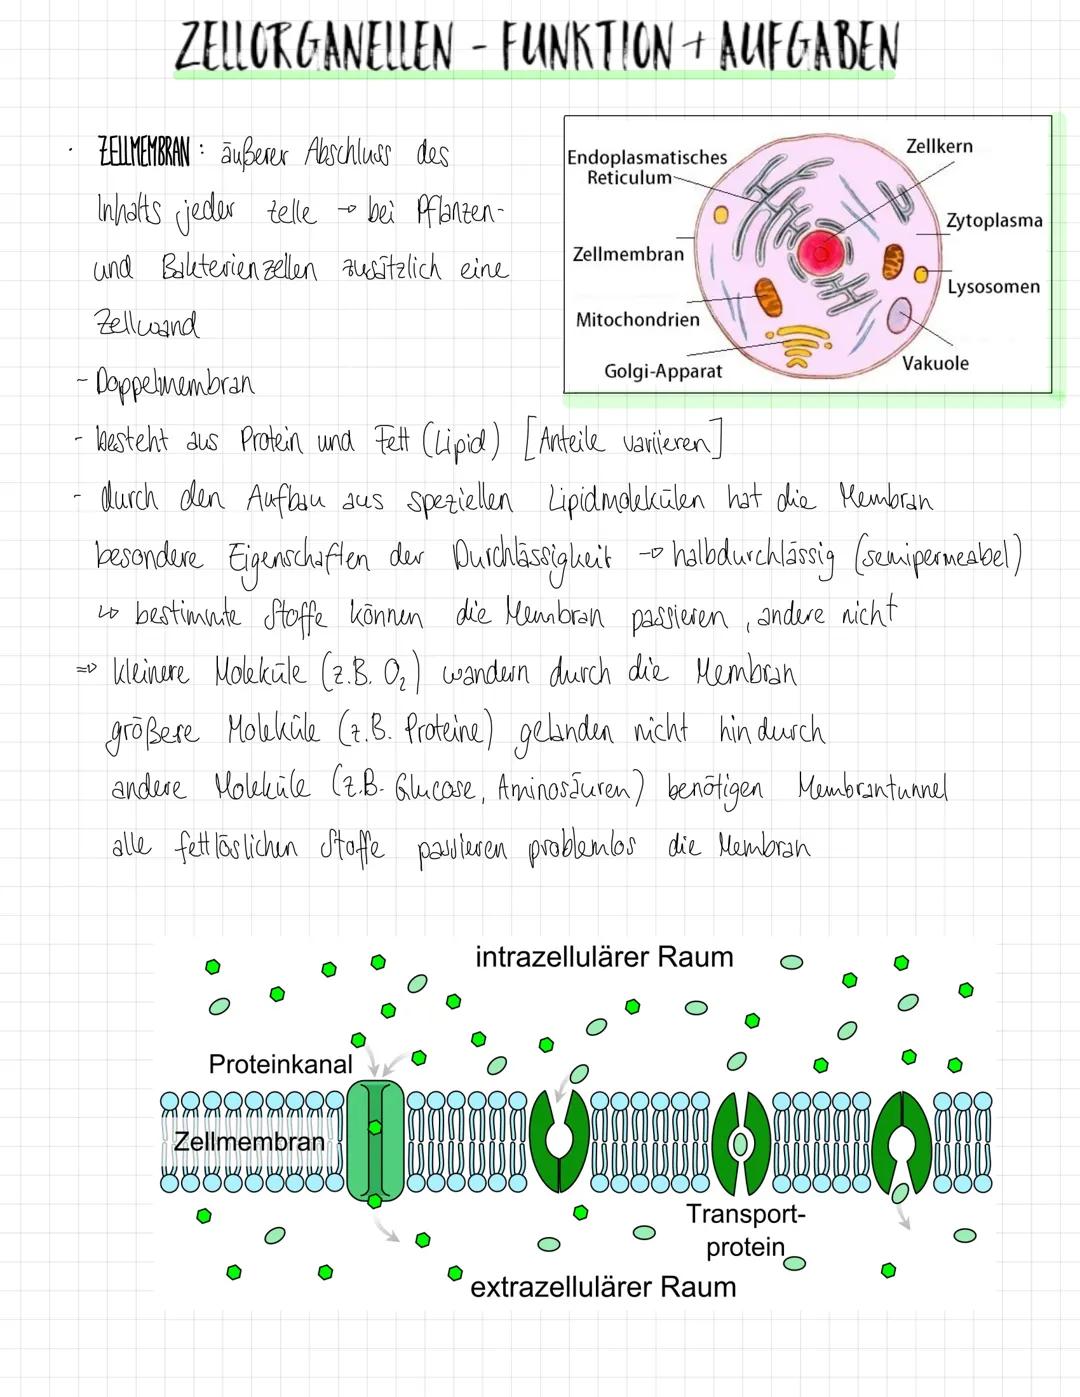 ZELLORGANELLEN - FUNKTION + AUFGABEN
· ZELLMEMBRAN : äußerer Abschluss des
Inhalts jeder Zelle → bei Pflanzen-
und Bakterienzellen zusätzlich eine
Zellwand
- Doppelmembran
- besteht aus Protein und Fett (Lipid) [Anteile variieren]
- durch den Aufbau aus speziellen Lipidmolekülen hat die Membran
besondere Eigenschaften der Durchlässigkeit → halbdurchlässig (semipermeabel)
↳ bestimmte Stoffe können die Membran passieren, andere nicht
⇒ kleinere Moleküle (z.B. O₂) wandern durch die Membran
größere Moleküle (z.B. Proteine) gelanden nicht hindurch
andere Moleküle (z.B. Glucose, Aminosäuren) benötigen Membrantunnel
alle fettlöslichen Stoffe passieren problemlos die Membran
Endoplasmatisches
Reticulum
Zellmembran
Mitochondrien
Golgi-Apparat
Zellkern
Zytoplasma
Lysosomen
Vakuole
intrazellulärer Raum
Proteinkanal
Zellmembran
Transport-
protein
extrazellulärer Raum